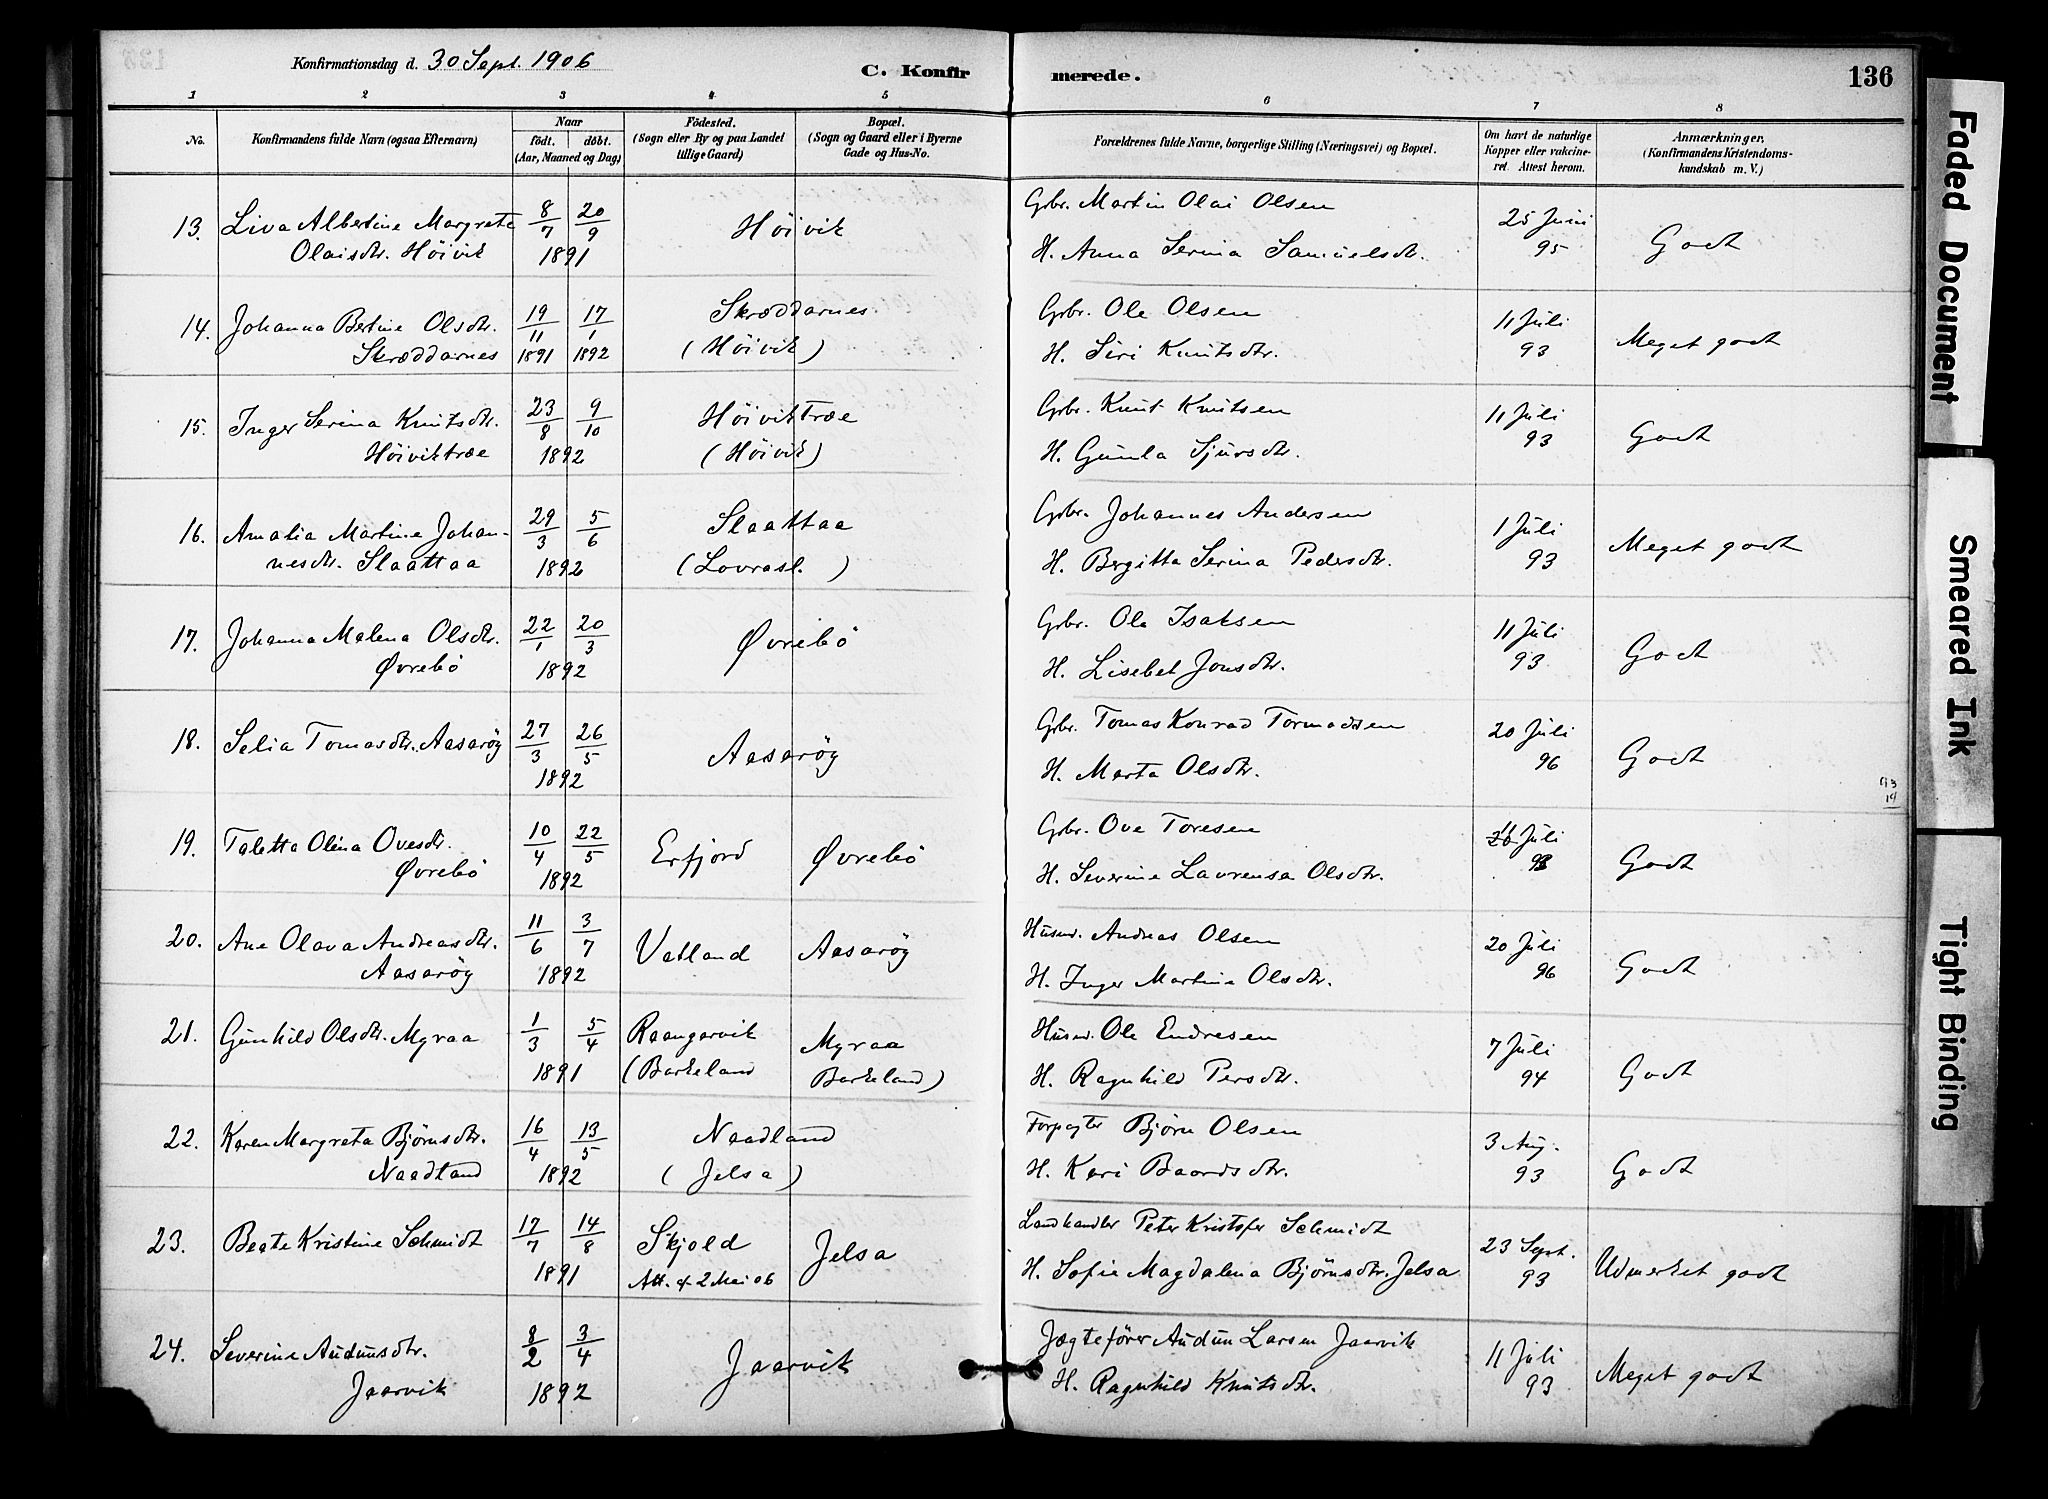 Konfirmationsdag d. 30 Sept. 1906
C. Konfir
merede.
136
1 2 3 4 5 6 7 8
No.
Konfirmandens fulde Navn (ogsaa Efternavn)
Naar
födt. döbt.
(Aar, Maaned og Dag)
Födested.
(Sogn eller By og paa Landet
tillige Gaard)
Bopæl.
(Sogn og Gaard eller i Byerne
Gade og Hus-No.
Forældrenes fulde Navne, borgerlige Stilling (Næringsvei) og Bopæl.
Om havt de naturlige
Kopper eller vakcine-
ret. Attest herom.
Anmærkninger,
(Konfirmandens Kristendoms-
kundskab m. V.)
13. Liva Albertine Margreta 8/7 20/9 Höivik Gbr. Martin Olai Olsen 25 Juni
Olaisdtr. Höivik 1891 H. Anna Serina Samuelsdtr. 95 Godt
14. Johanna Bertine Olsdtr. 19/11 17/1 Skræddarnes Gbr. Ole Olsen 11 Juli
Skræddarnes 1891 1892 (Höivik) H. Siri Knutsdtr. 93 Meget godt
15. Inger Serina Knutsdtr. 23/8 9/10 Höiviktræe Gbr. Knut Knutsen 11 Juli
Höiviktræe 1892 (Höivik) H. Gunla Sjursdtr. 93 Godt
16. Amalia Martine Johan- 29/3 5/6 Slaattaa Gbr. Johannes Andersen 1 Juli
nesdtr. Slaattaa 1892 (Lovrasl.) H. Bergitta Serina Pedersdtr. 93 Meget godt
17. Johanna Malena Olsdtr. 22/1 20/3 Øvrebö Gbr. Ole Isaksen 11 Juli
Øvrebö 1892 H. Lisebet Jonsdtr. 93 Godt
18. Selia Tomasdtr. Aasaröy 27/3 26/5 Aasaröy Gbr. Tomas Konrad Tormodsen 20 Juli
1892 H. Marta Olsdtr. 96 Godt
93
14
19. Taletta Olina Ovesdtr. 10/4 22/5 Erfjord Øvrebö Gbr. Ove Toresen Juli
Øvrebö 1892 H. Severine Laurensa Olsdtr. 93 Godt
20. Ane Olava Andreasdtr. 11/6 3/7 Vatland Aasaröy Husm. Andreas Olsen 20 Juli
Aasaröy 1892 H. Inger Martine Olsdtr. 96 Godt
21. Gunhild Olsdtr. Myraa 1/3 5/4 Raangarvik Myraa Husm. Ole Endresen 7 Juli
1891 (Barkeland Barkeland) H. Ragnhild Persdtr. 94 Godt
22. Karen Margreta Bjørnsdtr. 16/4 13/5 Naadland Forpagter Bjørn Olsen 3 Aug.
Naadland 1892 (Jelsa) H. Kari Baardsdtr. 93 Godt
23. Beate Kristine Schmidt 17/7 14/8 Skjold Jelsa Landhandler Peter Kristofer Schmidt 23 Sept.
1891 Att. 2 Mai 06 H. Sofie Magdalena Bjørnsdtr. Jelsa 93 Udmerket godt
24. Severine Audunsdtr. 8/2 3/4 Jaarvik Jægtefører Audun Larsen Jaarvik 11 Juli
Jaarvik 1892 H. Ragnhild Knutsdtr. 93 Meget godt
Faded Document
Smeared Ink
Tight Binding